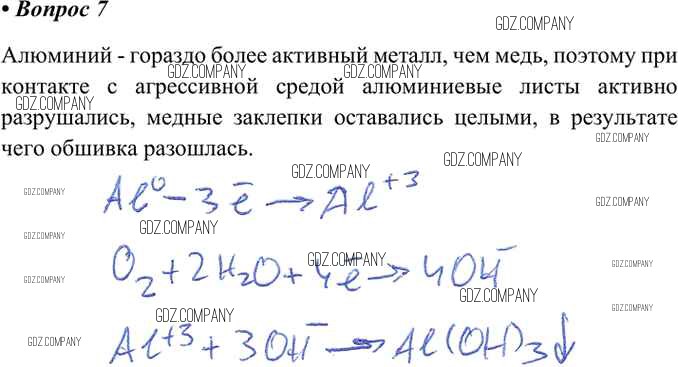 • Вопрос 7
GDZ.COMPANY
Алюминий - гораздо более активный металл, чем медь, поэтому при
GDZ.COMPANY GDZ.COMPANY
контакте с агрессивной средой алюминиевые листы активно
GDZ.COMPANY GDZ.COMPANY
разрушались, медные заклепки оставались целыми, в результате
GDZ.COMPANY
чего обшивка разошлась.
GDZ.COMPANY
GDZ.COMPANY
GDZ.COMPANY
Al⁰ - 3ē → Al⁺³
GDZ.COMPANY
GDZ.COMPANY
GDZ.COMPANY
GDZ.COMPANY
GDZ.COMPANY
O₂ + 2H₂O + 4ē → 4OH⁻
GDZ.COMPANY
GDZ.COMPANY
GDZ.COMPANY
GDZ.COMPANY
GDZ.COMPANY
Al⁺³ + 3OH⁻ → Al(OH)₃↓
GDZ.COMPANY
GDZ.COMPANY